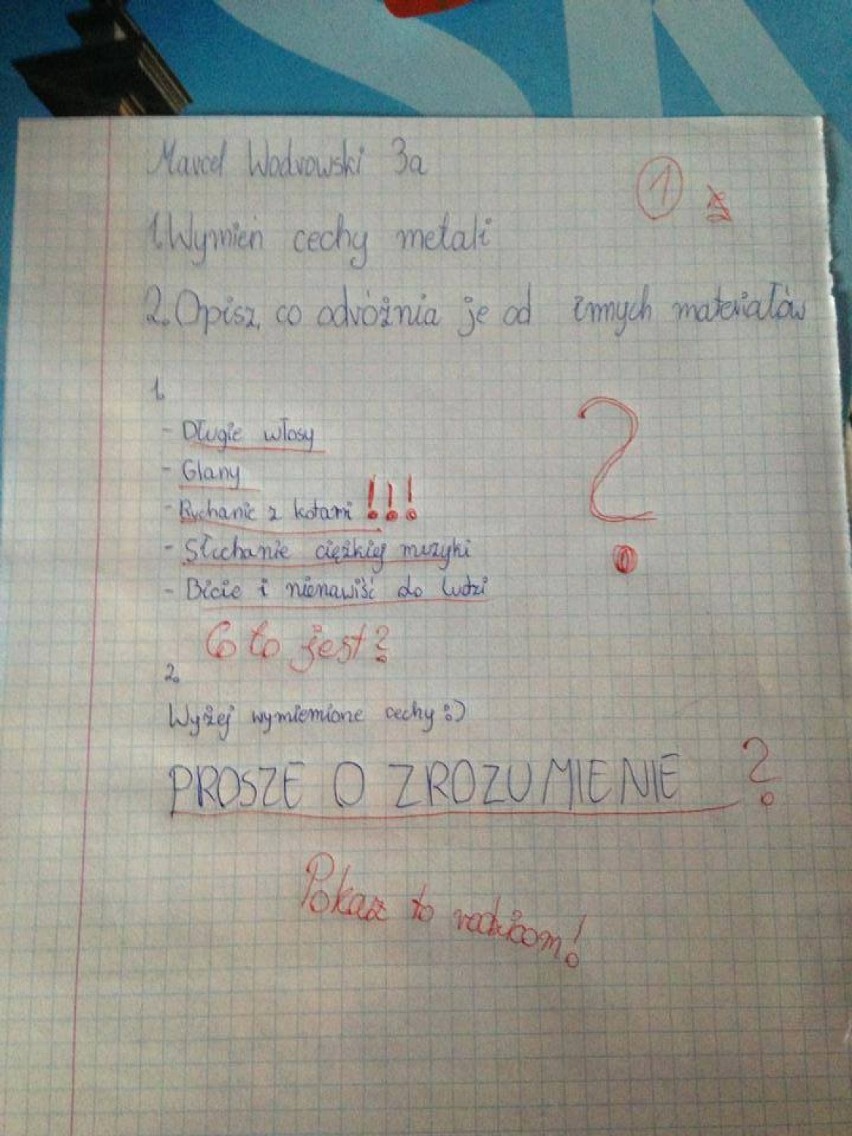 Marcel Wodrowski 3a
1
1. Wymień cechy metali
2. Opisz, co odróżnia je od innych materiałów
1.
- Długie włosy
- Glany
- Ruchanie z kotami !!!
?
- Słuchanie ciężkiej muzyki
- Bicie i nienawiść do ludzi
Co to jest?
2.
Wyżej wymiemione cechy :)
PROSZE O ZROZUMIENIE ?
Pokaz to rodzicom!